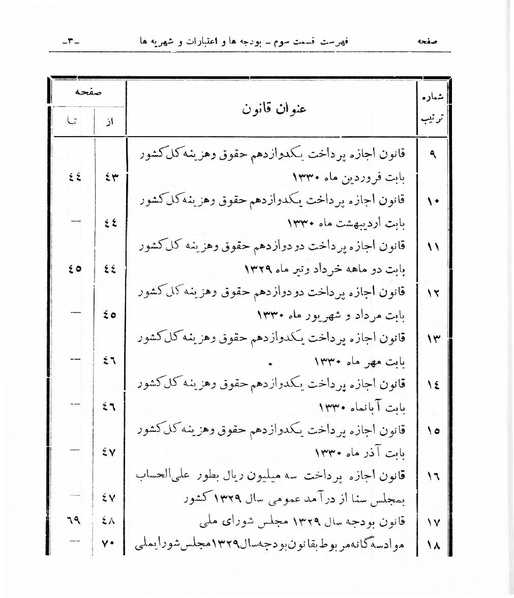 صفحه فهرست قسمت سوم - بودجه ها و اعتبارات و شهریه ها -۳-
شماره ترتیب عنوان قانون صفحه
از تا
۹ قانون اجازه پرداخت یکدوازدهم حقوق وهزینه کل کشور
بابت فروردین ماه ۱۳۳۰ ٤۳ ٤٤
۱۰ قانون اجازه پرداخت یکدوازدهم حقوق وهزینه کل کشور
بابت اردیبهشت ماه ۱۳۳۰ ٤٤ —
۱۱ قانون اجازه پرداخت دودوازدهم حقوق وهزینه کل کشور
بابت دو ماهه خرداد وتیر ماه ۱۳۲۹ ٤٤ ٤٥
۱۲ قانون اجازه پرداخت دودوازدهم حقوق وهزینه کل کشور
بابت مرداد و شهریور ماه ۱۳۳۰ ٤٥ —
۱۳ قانون اجازه پرداخت یکدوازدهم حقوق وهزینه کل کشور
بابت مهر ماه ۱۳۳۰ ٤٦ —
۱٤ قانون اجازه پرداخت یکدوازدهم حقوق وهزینه کل کشور
بابت آبانماه ۱۳۳۰ ٤٦ —
۱٥ قانون اجازه پرداخت یکدوازدهم حقوق وهزینه کل کشور
بابت آذر ماه ۱۳۳۰ ٤۷ —
۱٦ قانون اجازه پرداخت سه میلیون ریال بطور علی‌الحساب
بمجلس سنا از درآمد عمومی سال ۱۳۲۹ کشور ٤۷ —
۱۷ قانون بودجه سال ۱۳۲۹ مجلس شورای ملی ٤۸ ٦۹
۱۸ موادسه‌گانه مربوط بقانون بودجه سال ۱۳۲۹ مجلس شورایملی ۷۰ —